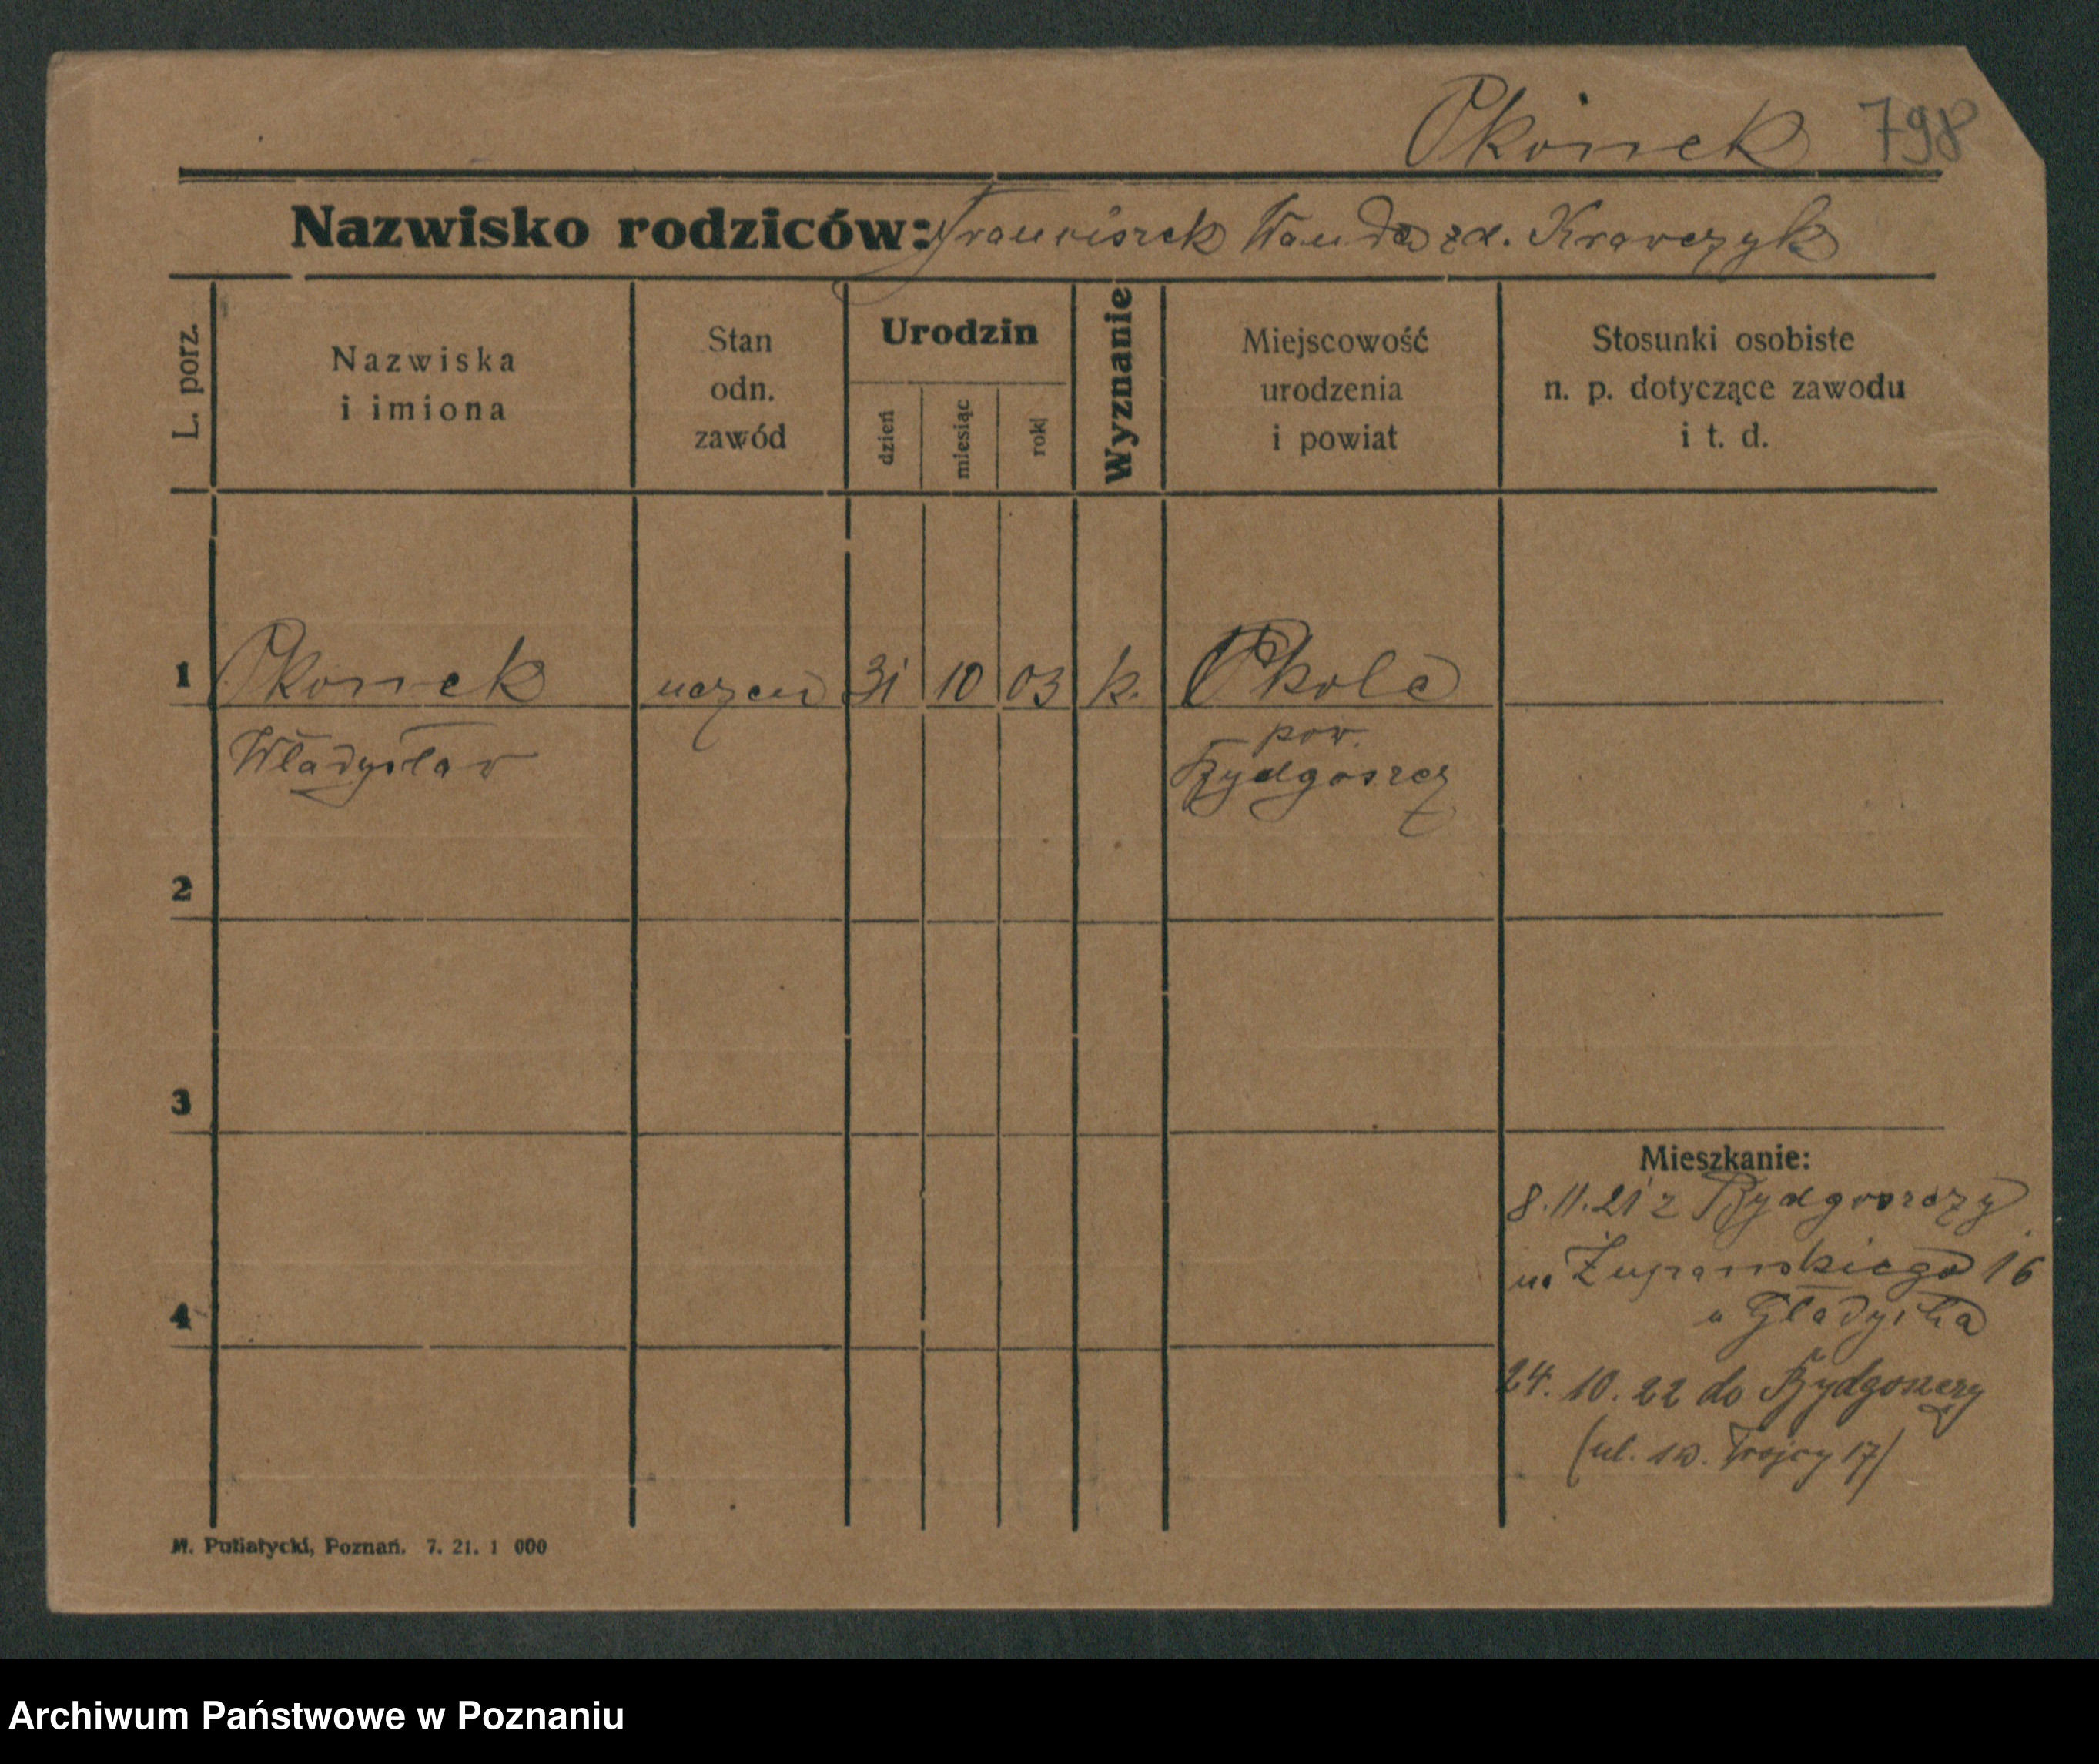 Okonek 798
Nazwisko rodziców: Franciszek Wanda zd. Krawczyk
L. porz.
Nazwiska
i imiona
Stan
odn.
zawód
Urodzin
dzień
miesiąc
rok
Wyznanie
Miejscowość
urodzenia
i powiat
Stosunki osobiste
n. p. dotyczące zawodu
i t. d.
1 Okonek uczeń 31 10 03 k. Okole
Władysław pow.
Bydgoszcz
2
3
4
Mieszkanie:
8.11.21 z Bydgoszczy
na Żupańskiego 16
u Gładysza
24. 10. 22 do Bydgoszczy
(ul. św. Trójcy 17)
M. Putiatycki, Poznań. 7. 21. 1 000
Archiwum Państwowe w Poznaniu